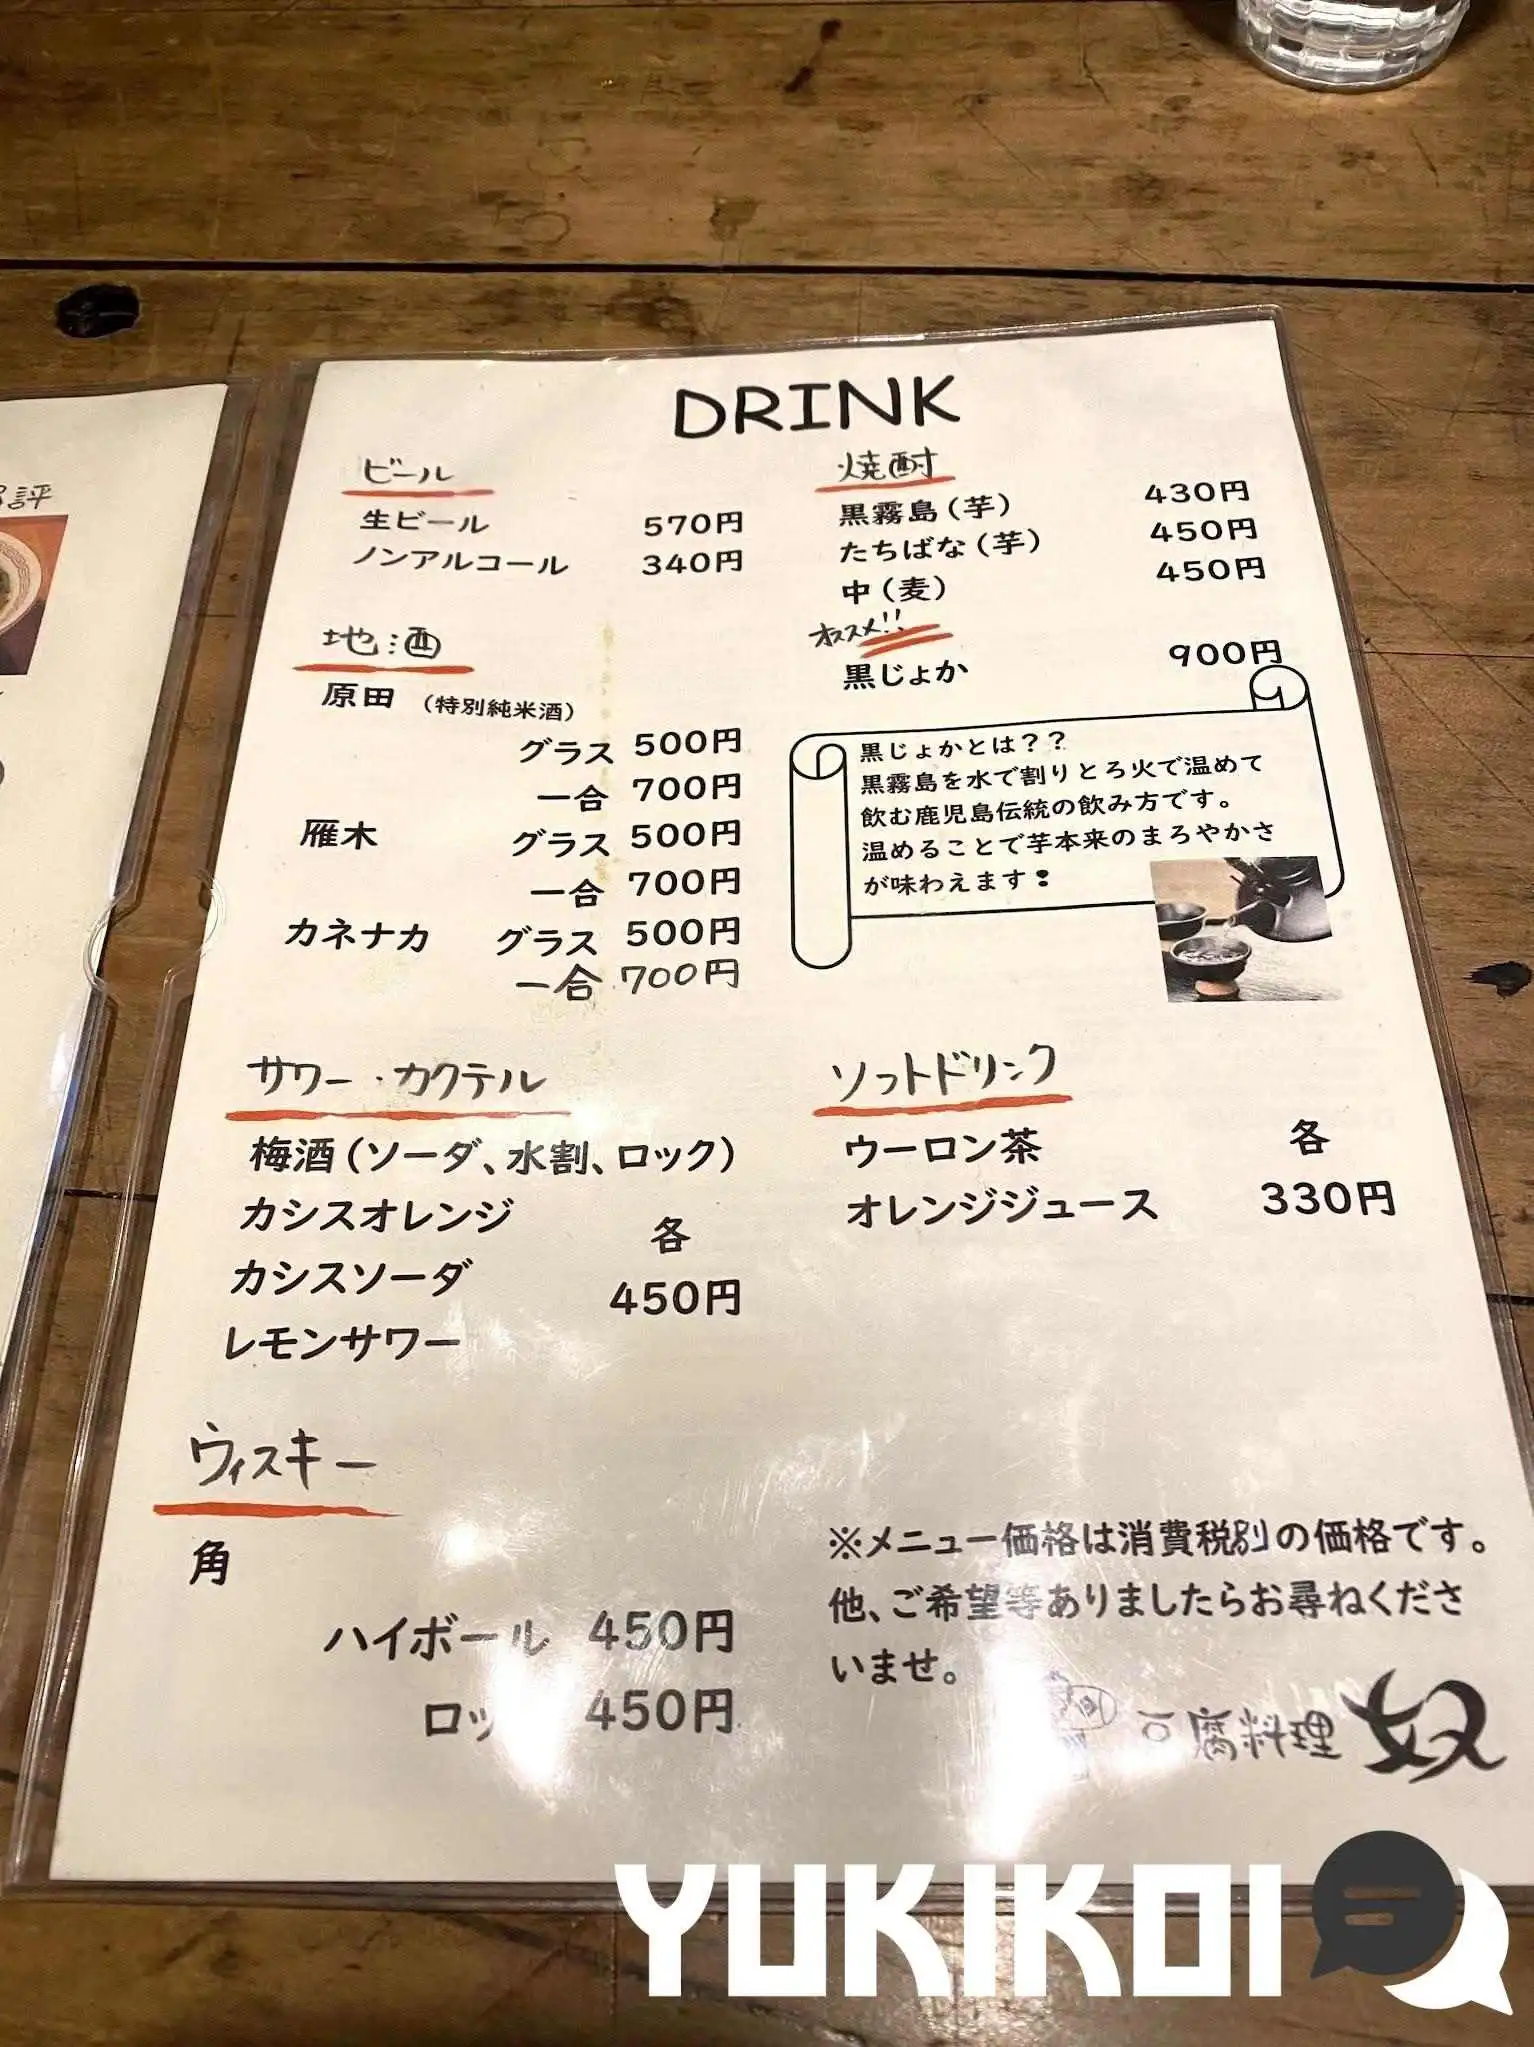 DRINK
ビール
生ビール 570円
ノンアルコール 340円
地酒
原田 (特別純米酒)
グラス 500円
一合 700円
雁木 グラス 500円
一合 700円
カネナカ グラス 500円
一合 700円
焼酎
黒霧島(芋) 430円
たちばな(芋) 450円
中(麦) 450円
オススメ!!
黒じょか 900円
黒じょかとは??
黒霧島を水で割りとろ火で温めて
飲む鹿児島伝統の飲み方です。
温めることで芋本来のまろやかさ
が味わえます❢
サワー・カクテル
梅酒(ソーダ、水割、ロック)
カシスオレンジ 各
カシスソーダ 450円
レモンサワー
ソフトドリンク
ウーロン茶 各
オレンジジュース 330円
ウィスキー
角
ハイボール 450円
ロッ 450円
※メニュー価格は消費税別の価格です。
他、ご希望等ありましたらお尋ねくださ
いませ。
豆腐料理 奴
評
YUKIKOI